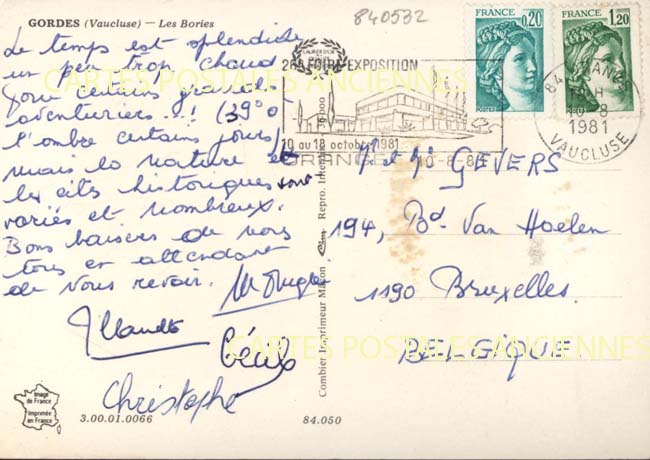 GORDES (Vaucluse) — Les Bories
840532
Le temps est splendide
un peu trop chaud
pour certains grands
aventuriers..! (39° à
l'ombre certains jours)
mais la nature et
les cités historiques sont
variés et nombreux.
Bons baisers de nous
tous en attendant
de vous revoir.
Christophe
Image
de France
Imprimée
en France
3.00.01.0066
84.050
Combier Imprimeur Macon
Repro. Interdite
26e FOIRE EXPOSITION
10 au 18 octobre 1981
ORANGE 10-8-81
FRANCE
0,20
FRANCE
1,20
84 ORANGE
H
10-8
1981
VAUCLUSE
Mr et Me GEVERS
194, Bd. Van Haelen
1190 Bruxelles.
BELGIQUE.
CARTES POSTALES ANCIENNES
CARTES POSTALES ANCIENNES